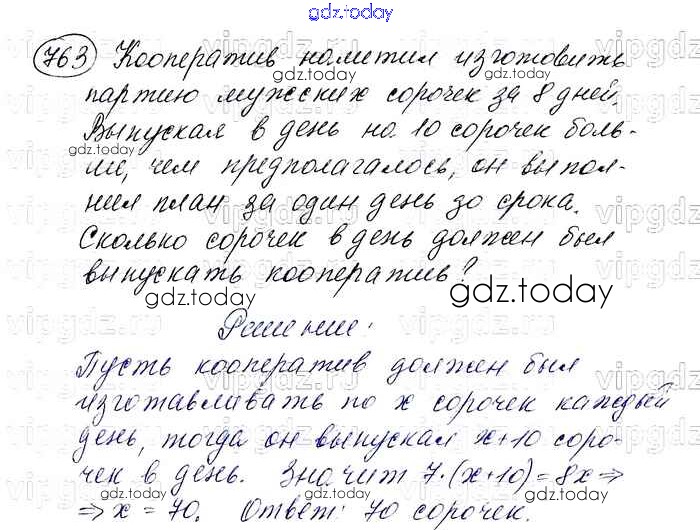 gdz.today
763 Кооператив наметил изготовить
gdz.today
партию мужских сорочек за 8 дней.
Выпуская в день на 10 сорочек боль-
gdz.today
ше, чем предполагалось, он выпол-
gdz.today
нил план за один день до срока.
Сколько сорочек в день должен был
gdz.today
выпускать кооператив?
gdz.today
gdz.today
Решение:
Пусть кооператив должен был
gdz.today
изготавливать по x сорочек каждый
день, тогда он выпускал x+10 соро-
чек в день. Значит 7·(x+10)=8x⇒
gdz.today
⇒x=70. Ответ: 70 сорочек.
gdz.today